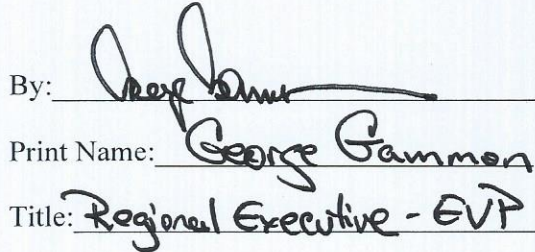 By: George Gammon
Print Name: George Gammon
Title: Regional Executive - EVP